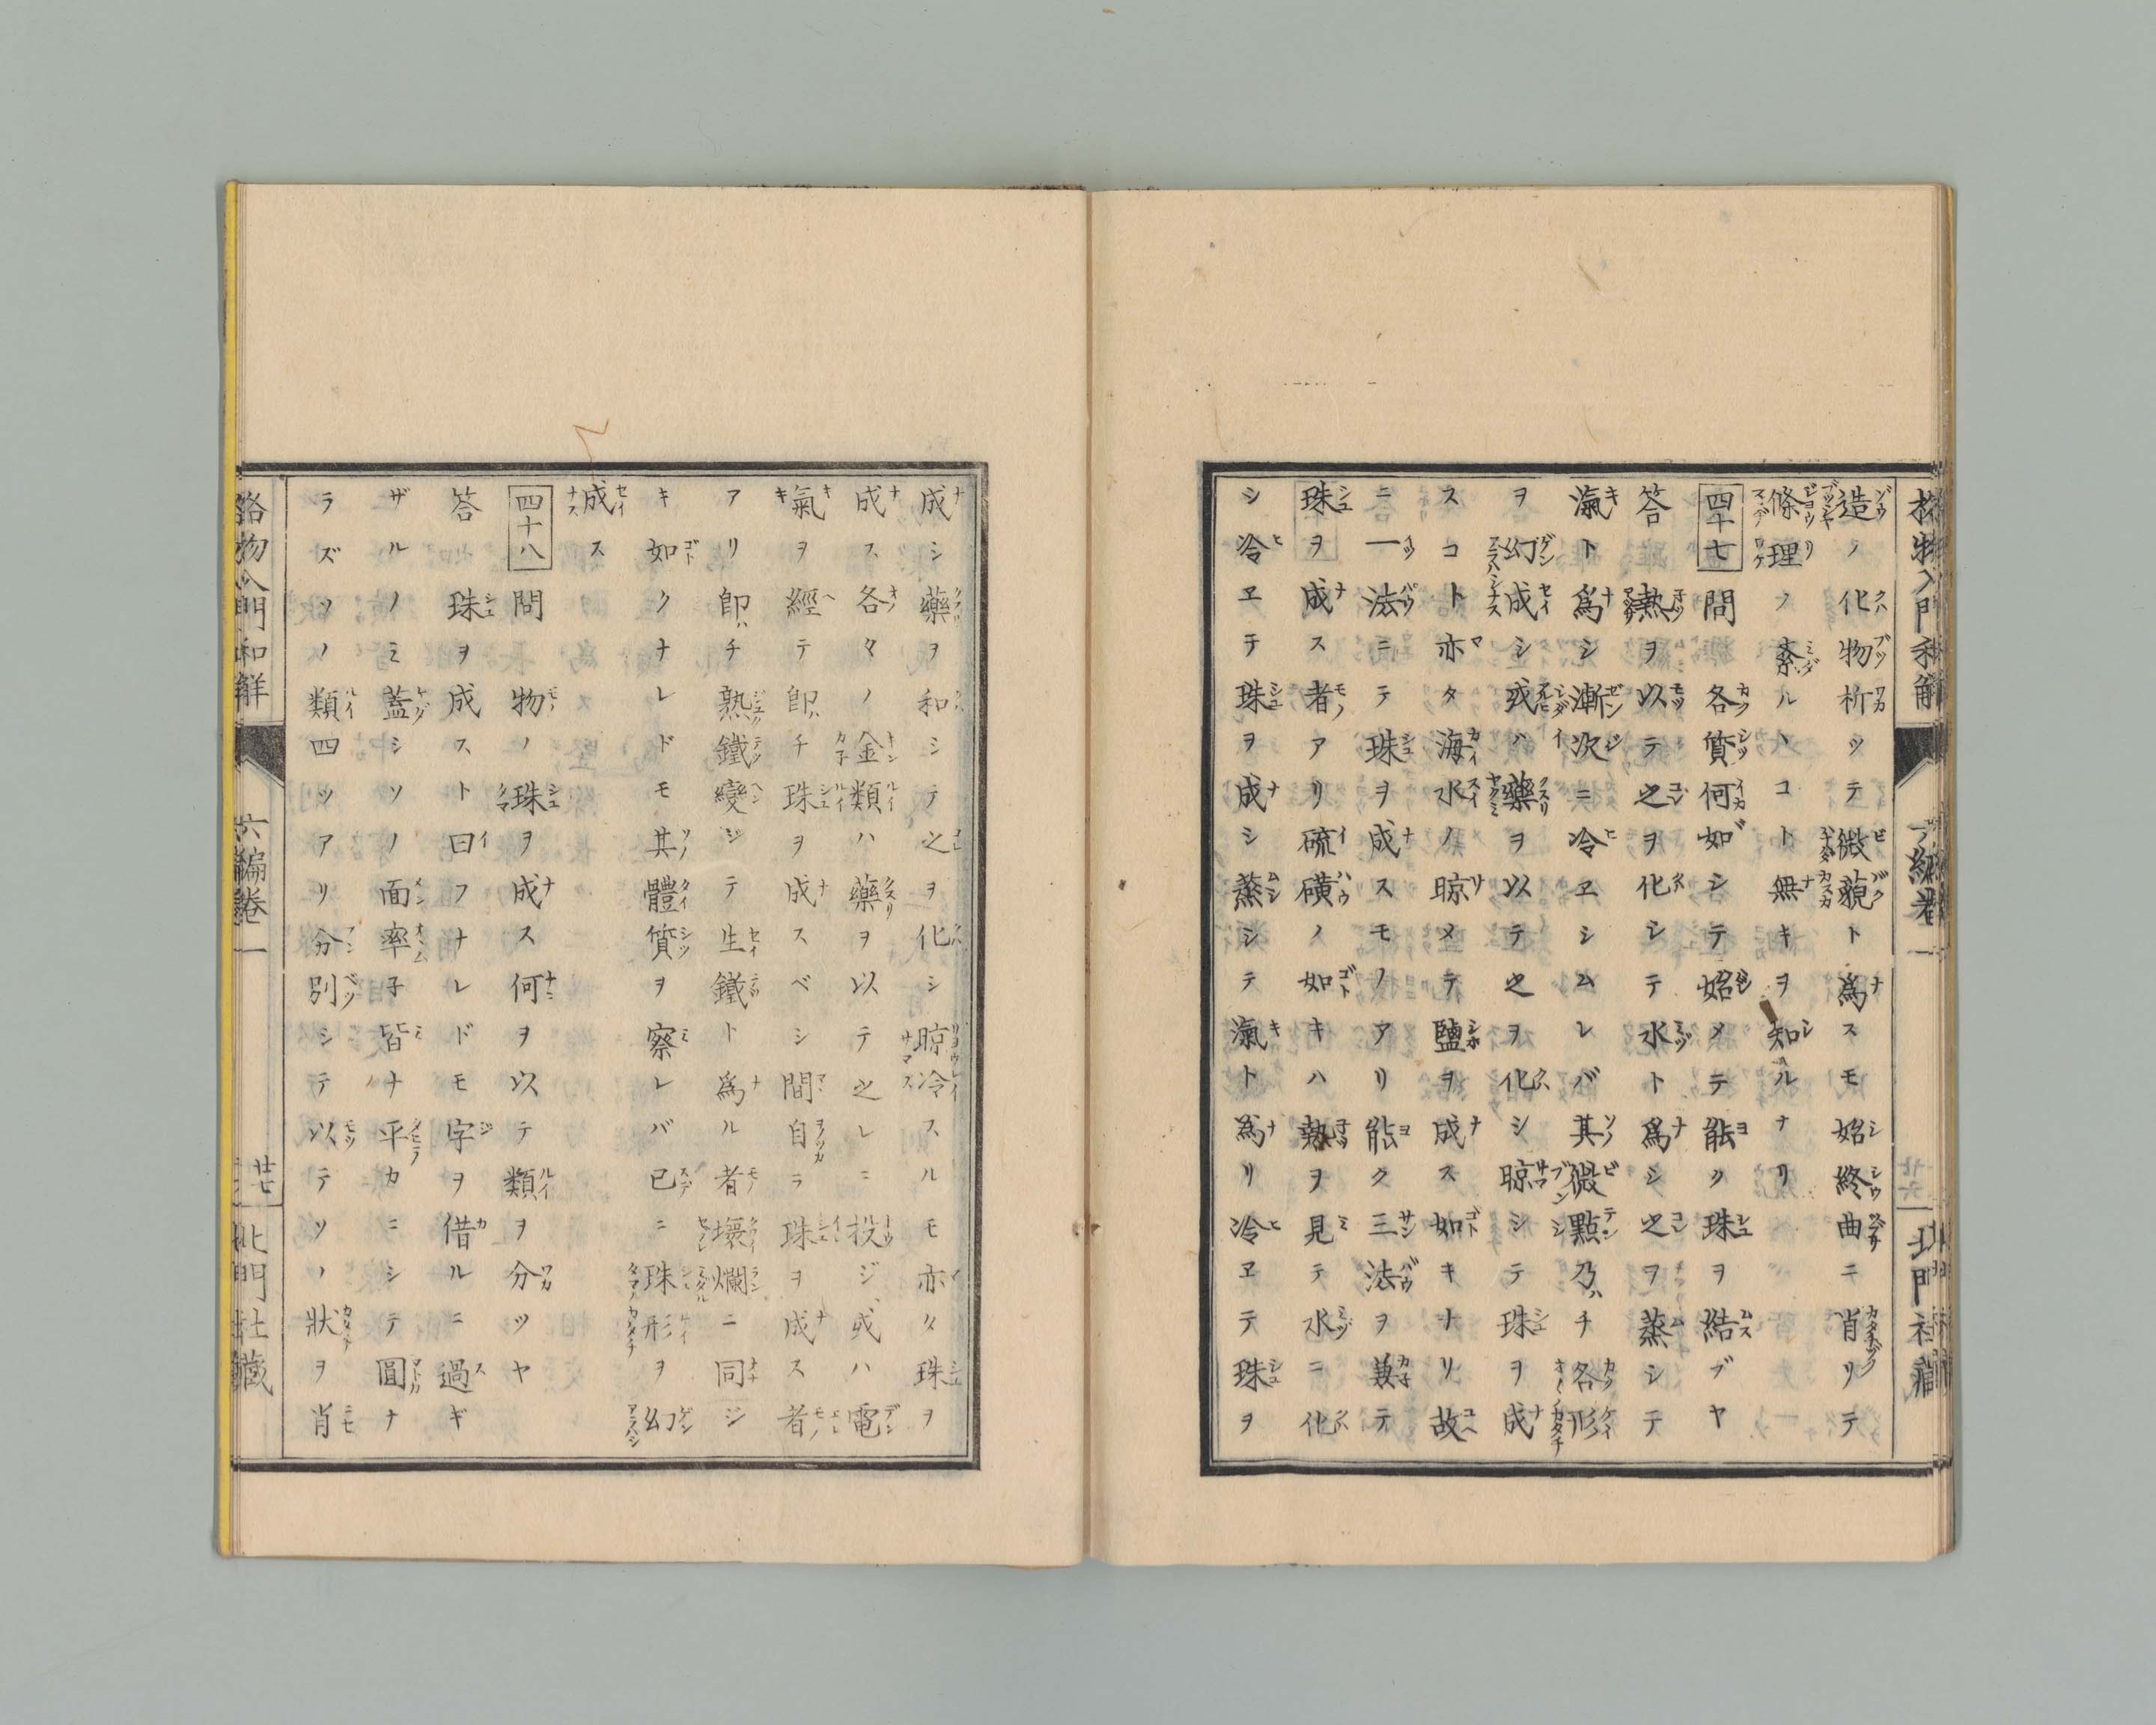 造ノ化物析ツテ微藐ト爲スモ始終曲ニ肖リテ
條理ノ紊ルヽコト無キヲ知ルナリ
四十七 問 各質何如シテ始メテ能ク珠ヲ結ブヤ
答 熱ヲ以テ之ヲ化シテ水ト爲シ之ヲ蒸シテ
瀛ト爲シ漸次ニ冷ヱシムレバ其微點乃チ各形
ヲ幻成シ或ハ藥ヲ以テ之ヲ化シ晾シテ珠ヲ成
スコト亦タ海水ノ晾メテ鹽ヲ成ス如キナリ故
ニ一法ニテ珠ヲ成スモノアリ能ク三法ヲ兼テ
珠ヲ成ス者アリ硫磺ノ如キハ熱ヲ見テ水ニ化
シ冷ヱテ珠ヲ成シ蒸シテ瀛ト爲リ冷ヱテ珠ヲ
成シ藥ヲ和シテ之ヲ化シ晾冷スルモ亦タ珠ヲ
成ス各々ノ金類ハ藥ヲ以テ之レニ投ジ或ハ電
氣ヲ經テ即チ珠ヲ成スベシ間自ラ珠ヲ成ス者
アリ即チ熟鐵變ジテ生鐵ト爲ル者壞爛ニ同ジ
キ如クナレドモ其體質ヲ察レバ已ニ珠形ヲ幻
成ス
四十八 問 物ノ珠ヲ成ス何ヲ以テ類ヲ分ツヤ
答 珠ヲ成スト曰フナレドモ字ヲ借ルニ過ギ
ザルノミ蓋シソノ面率子皆ナ平カニシテ圓ナ
ラズソノ類四ツアリ分別シテ以テソノ狀ヲ肖
格物入門和解 六編卷一 廿七 北門社藏